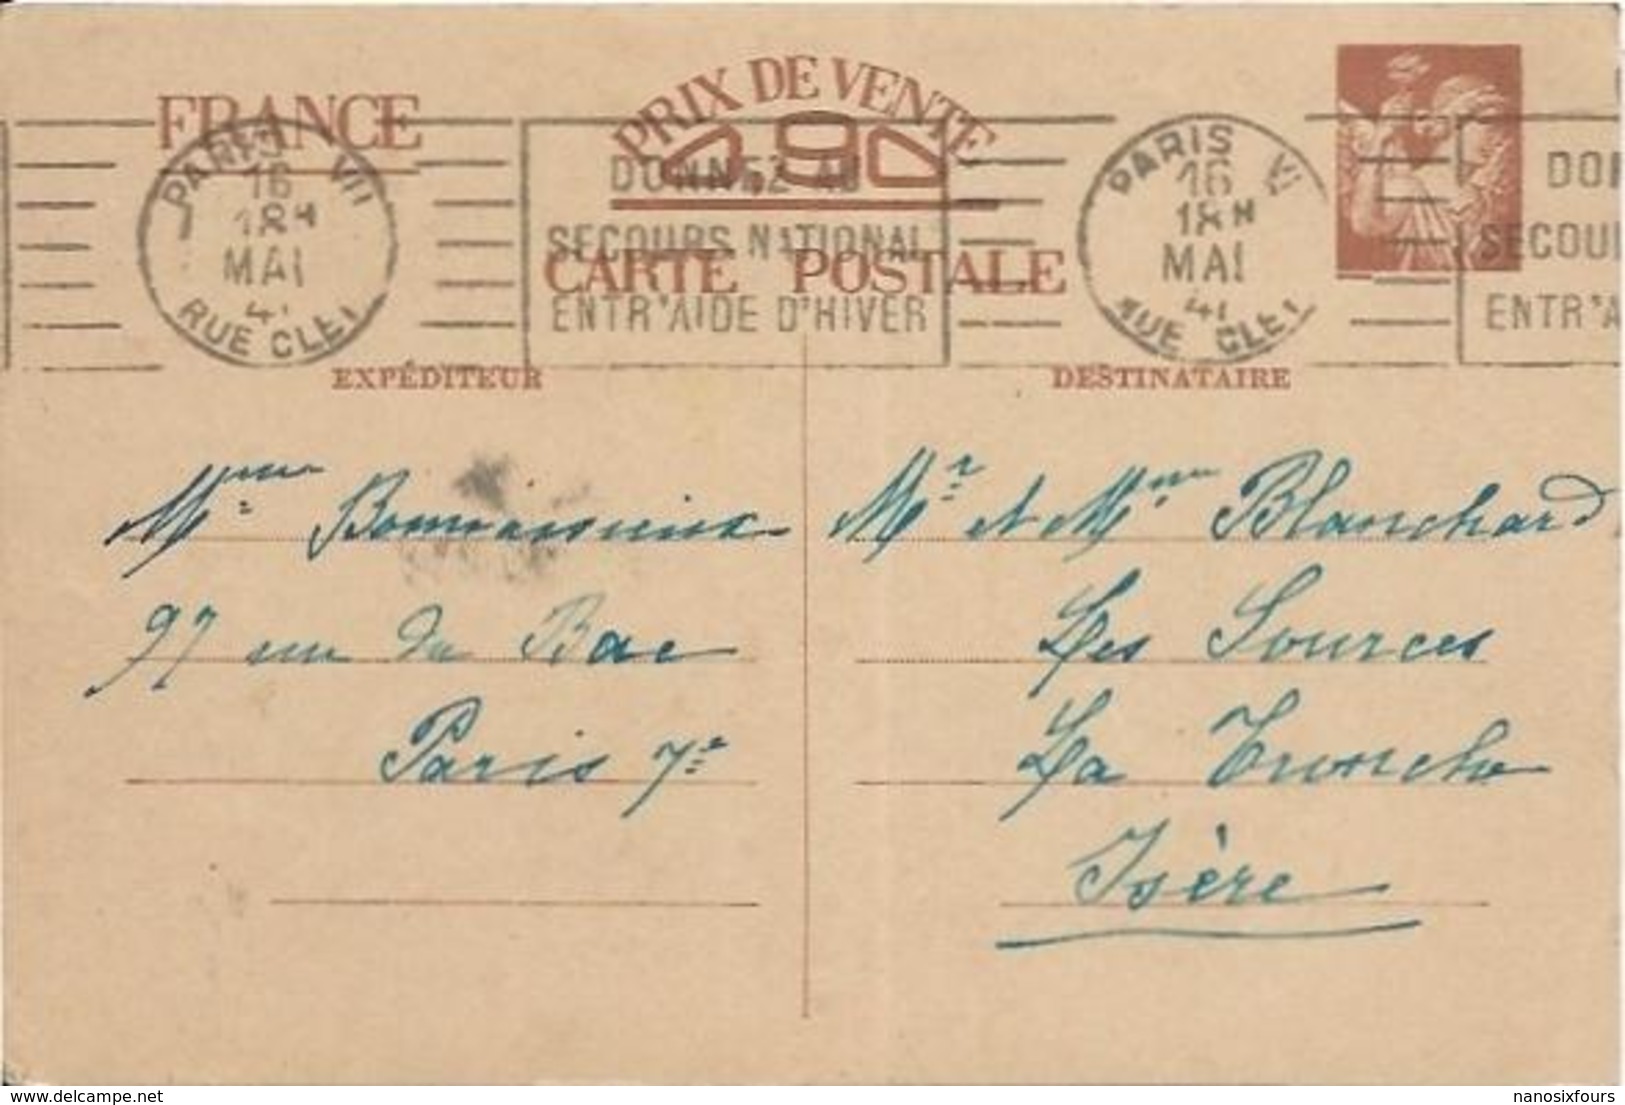 FRANCE
PRIX DE VENTE
0,90
CARTE POSTALE
PARIS VII
16
18H
MAI
41
RUE CLE
DONNEZ AU
SECOURS NATIONAL
ENTR'AIDE D'HIVER
PARIS VI
16
18H
MAI
41
RUE CLE
DO
SECOU
ENTR'A
EXPÉDITEUR
Mme
97 rue du Bac
Paris 7e
DESTINATAIRE
Mr et Mme Blanchard
Les Sources
La Tronche
Isère
delcampe.net
nanosixfours